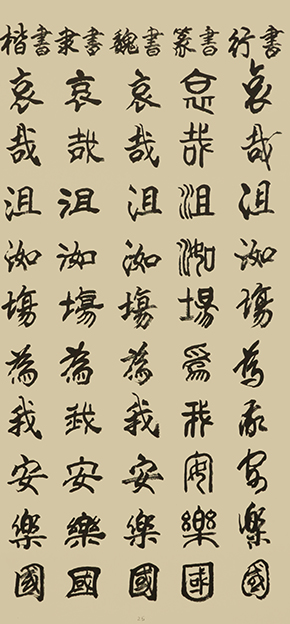 楷書
哀哉沮洳塲為我安樂國
隶書
哀哉沮洳塲為我安樂國
魏書
哀哉沮洳塲為我安樂國
篆書
哀哉沮洳場爲我安樂國
行書
哀哉沮洳塲為我安樂國